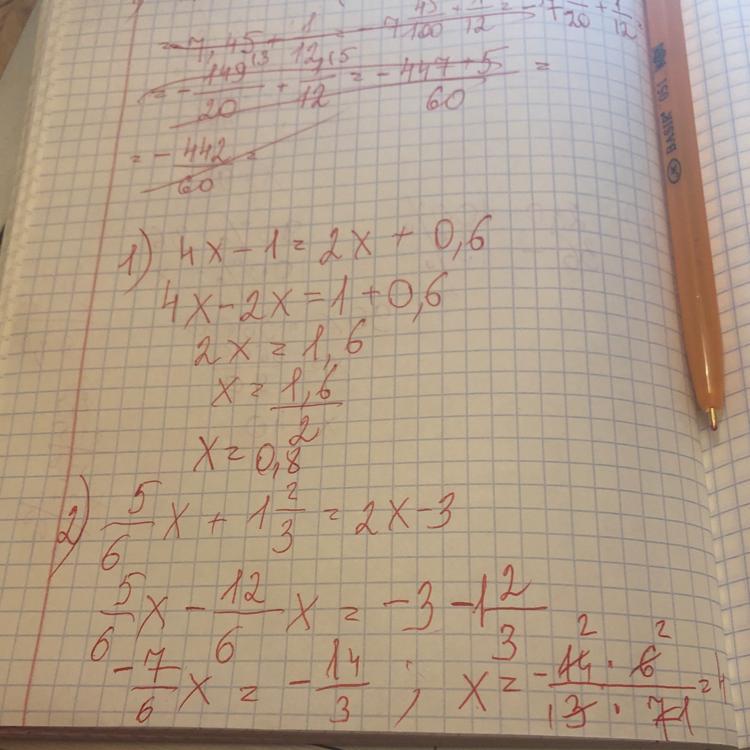 = -7,45 + 1/12 = -7 45/100 + 1/12 = -7 /20 + 1/12
= - 149/20 + 1/12 = - 447+5/60 =
= - 442/60 =
1) 4x - 1 = 2x + 0,6
4x - 2x = 1 + 0,6
2x = 1,6
x = 1,6/2
x = 0,8
2) 5/6 x + 1 2/3 = 2x - 3
5/6 x - 12/6 x = -3 - 1 2/3
-7/6 x = - 14/3 ; x = - 14 · 6 / 3 · 7 =
BASIK 051